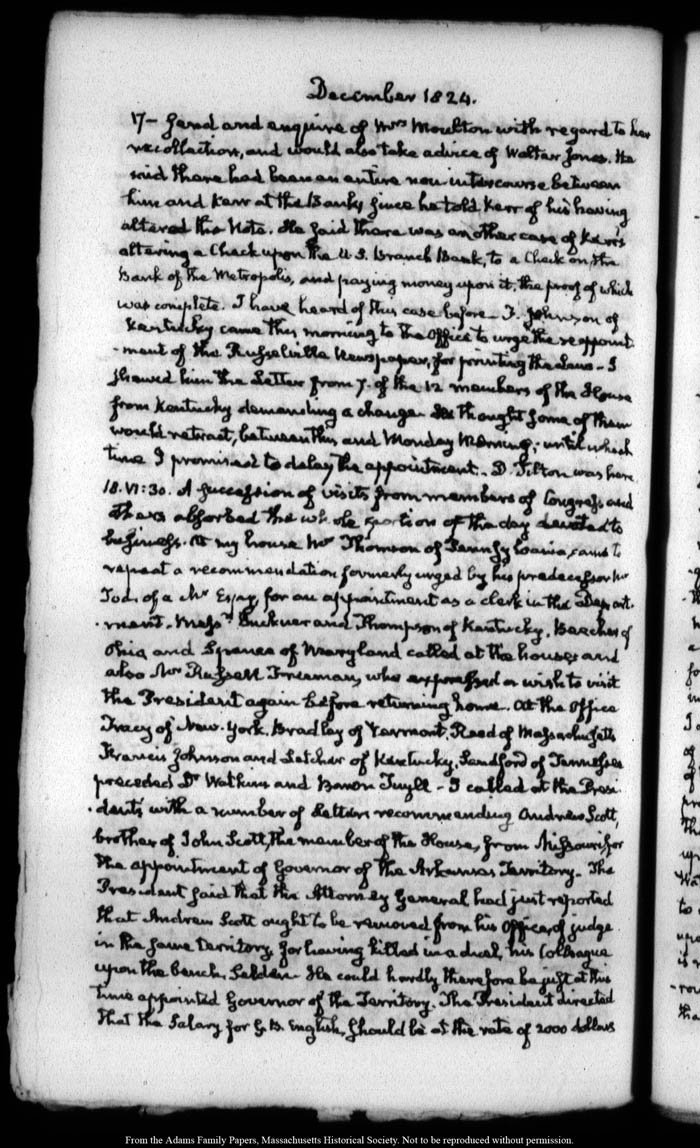 December 1824.
17 – send and enquire of Mrs Moulton with regard to her
recollection, and would also take advice of Walter Jones. He
said there had been an entire non-intercourse between
him and Kerr at the Bank, since he told Kerr of his having
altered the Note. He said there was another case of Kerr's
altering a Check upon the U.S. Branch Bank, to a Check on the
Bank of the Metropolis, and paying money upon it; the proof of which
was complete. I have heard of this case before – F. Johnson of
Kentucky came this morning to the Office to urge the reappoint-
-ment of the Russelville Newspaper, for printing the Laws – I
shewed him the Letter from 7. of the 12 members of the House
from Kentucky demanding a change. He thought some of them
would retract, between this and Monday Morning; until which
time I promised to delay the appointment. – D. Tilton was here
18. VI:30. A succession of visits from members of Congress and
others absorbed the whole portion of the day devoted to
business. At my house Mr Thomson of Pennsylvania, came to
repeat a recommendation formerly urged by his predecessor Mr
Tod, of a Mr Espy, for an appointment as a clerk in the Depart-
-ment. Messrs Buckner and Thompson of Kentucky, Beecher of
Ohio and Spence of Maryland called at the house; and
also Mr Russell Freeman, who expressed a wish to visit
the President again before returning home. At the Office
Tracy of New-York, Bradley of Vermont, Reed of Massachusetts
Francis Johnson and Letcher of Kentucky, Sandford of Tennessee
preceded Dr Watkins and Baron Tuyll – I called at the Presi-
-dent's with a number of Letters recommending Andrew Scott,
brother of John Scott, the member of the House, from Missouri, for
the appointment of Governor of the Arkansas Territory – The
President said that the Attorney General had just reported
that Andrew Scott ought to be removed from his Office, of judge
in the same Territory, for having killed in a duel, his Colleague
upon the bench, Selden – He could hardly therefore be just at this
time appointed Governor of the Territory. The President directed
that the Salary for G. B. English, should be at the rate of 2000 dollars
From the Adams Family Papers, Massachusetts Historical Society. Not to be reproduced without permission.